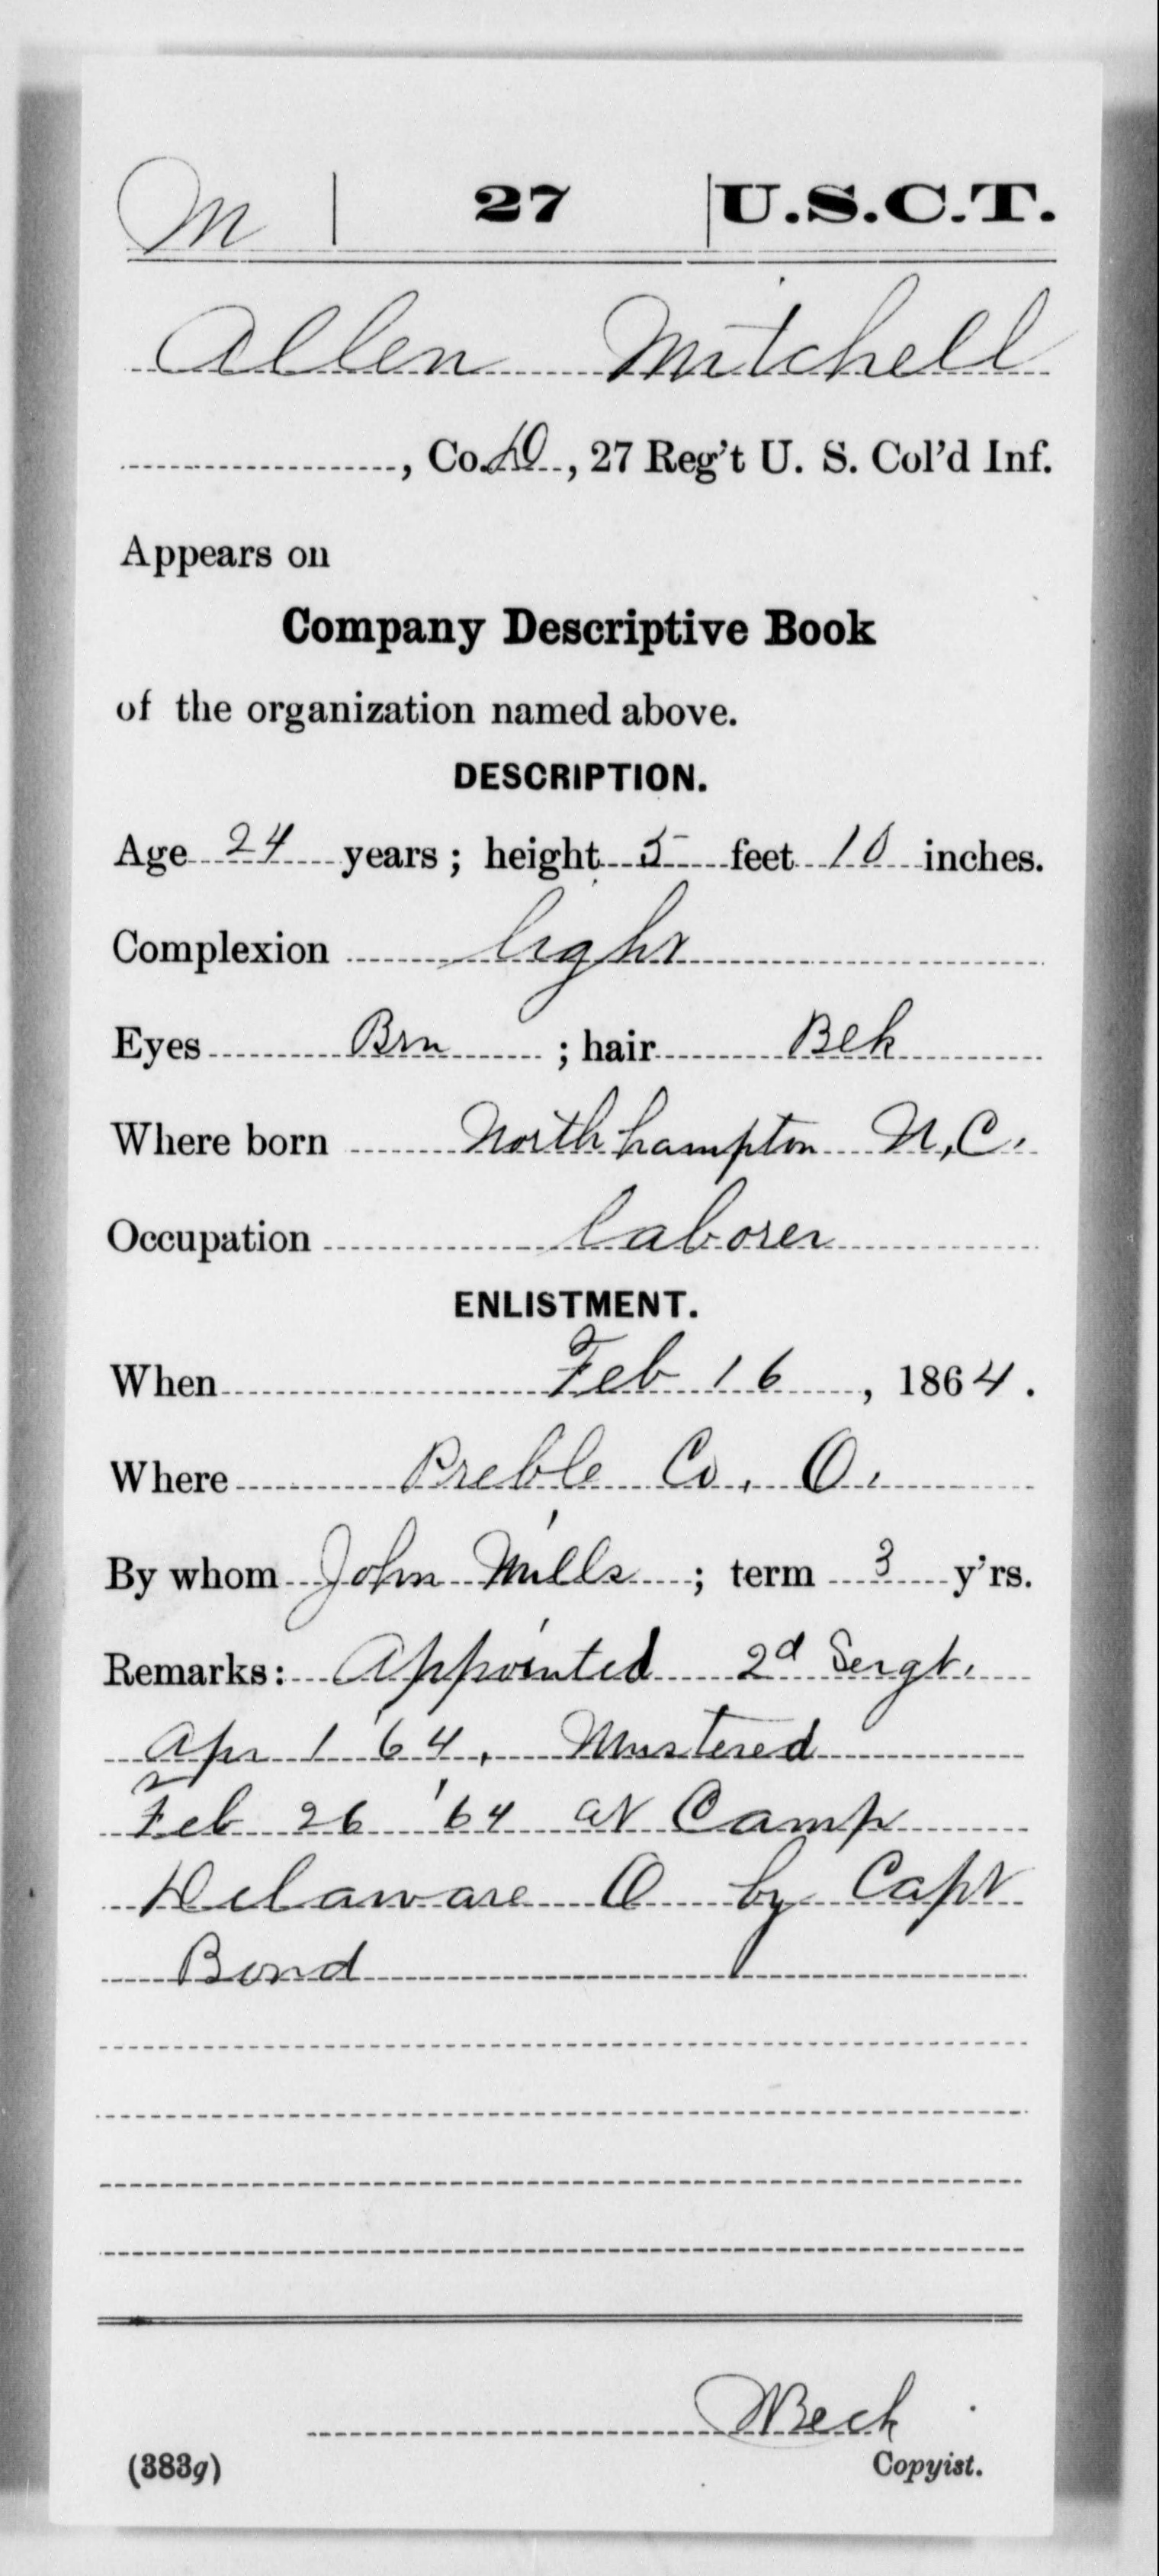 M | 27 | U.S.C.T.
Allen Mitchell
, Co. D, 27 Reg't U. S. Col'd Inf.
Appears on
Company Descriptive Book
of the organization named above.
DESCRIPTION.
Age 24 years; height 5 feet 10 inches.
Complexion light
Eyes Brn ; hair Blk
Where born North hampton N.C.
Occupation laborer
ENLISTMENT.
When Feb 16, 1864.
Where Preble Co. O.
By whom John Mills; term 3 y'rs.
Remarks: Appointed 2d Sergt.
Apr 1 '64. Mustered
Feb 26 '64 at Camp
Delaware O by Capt
Bond
WBeck
(383g) Copyist.